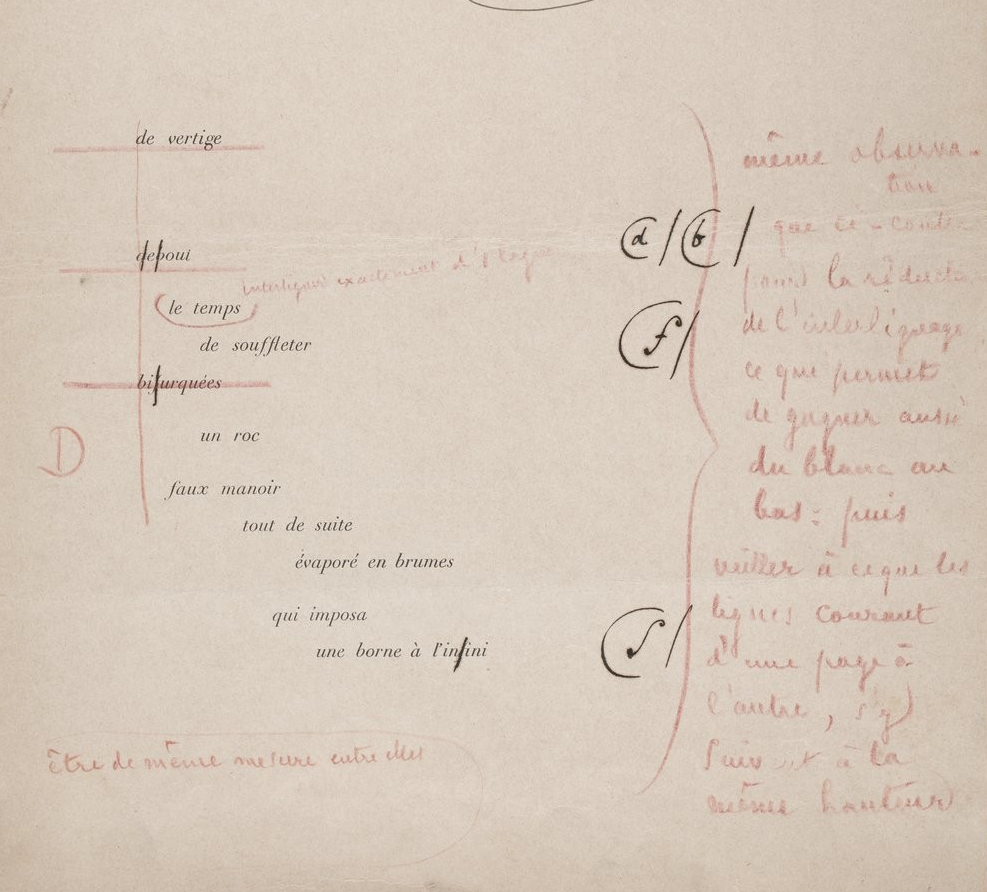 de vertige
debout
interligné exactement d'1 ligne
le temps
de souffleter
bifurquées
un roc
faux manoir
tout de suite
évaporé en brumes
qui imposa
une borne à l'infini
D
être de même mesure entre elles
d / b /
f /
f /
même observa-
tion
que ci-contre
la réduction
de l'interlignage
ce que permet
de gagner aussi
du blanc au
bas : puis
veiller à ce que les
lignes courant
d'une page à
l'autre, s'y
à la
même hauteur